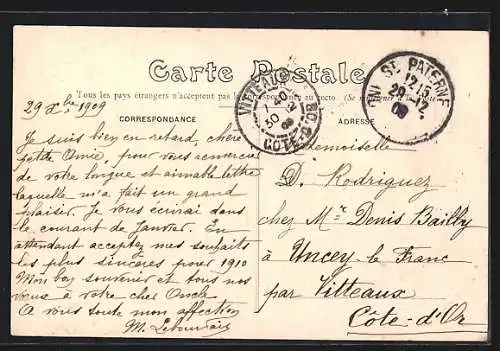 Carte Postale
Tous les pays étrangers n'acceptent pas la correspondance au recto (Se renseigner à la Poste)
29 Xbre 1909
CORRESPONDANCE
ADRESSE
VITTEAUX
7 40
30 12
09
COTE-D'OR
ST PATERNE
12 15
29
09
Je suis bien en retard, chère
petite Amie, pour vous remercier
de votre longue et aimable lettre
laquelle m'a fait un grand
plaisir. Je vous écrirai dans
le courant de Janvier. En
attendant acceptez mes souhaits
les plus sincères pour 1910
Mon bon souvenir et tous nos
vœux à votre cher Oncle
A vous toute mon affection
M.
Mademoiselle
D. Rodriguez
chez Mr Denis Bailly
à Uncey-le Franc
par Vitteaux
Côte-d'Or